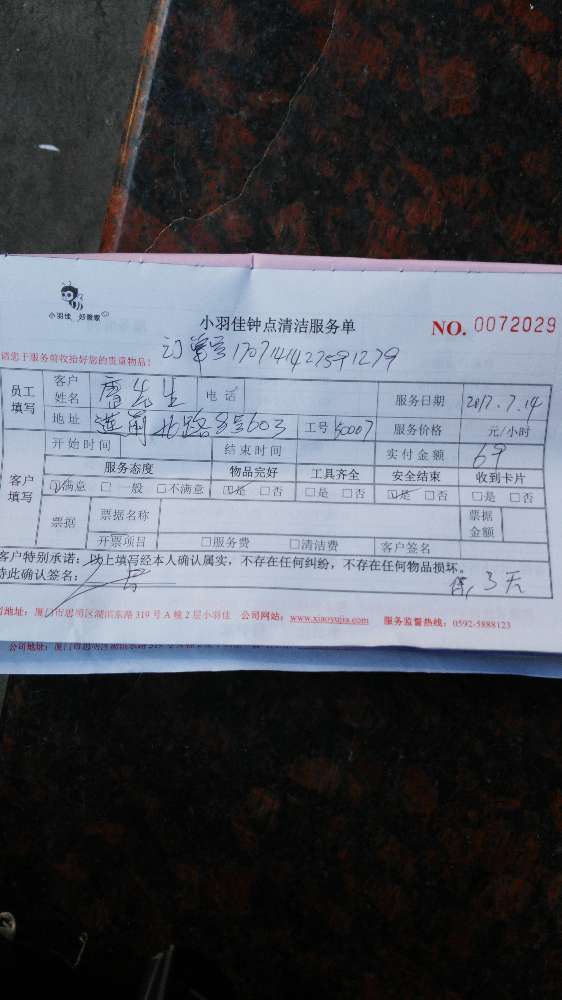 小羽佳 好管家
小羽佳钟点清洁服务单
NO. 0072029
请您于服务前收拾好您的贵重物品!
订单号1707141427591279
员工填写 客户姓名 先生 电话 服务日期 2017.7.14
地址 莲前北路8号603 工号 50007 服务价格 元/小时
开始时间 结束时间 实付金额 69
客户填写 服务态度 物品完好 工具齐全 安全结束 收到卡片
☑满意 □一般 □不满意 ☑是 □否 □是 □否 ☑是 □否 □是 □否
票据 票据名称 票据金额
开票项目 □服务费 □清洁费 客户签名
客户特别承诺:以上填写经本人确认属实,不存在任何纠纷,不存在任何物品损坏。
特此确认签名: 3天
司地址:厦门市思明区湖滨东路319号A幢2层小羽佳 公司网站:www.xiaoyujia.com 服务监督热线:0592-5888123
公司地址:厦门市思明区湖滨东路319号